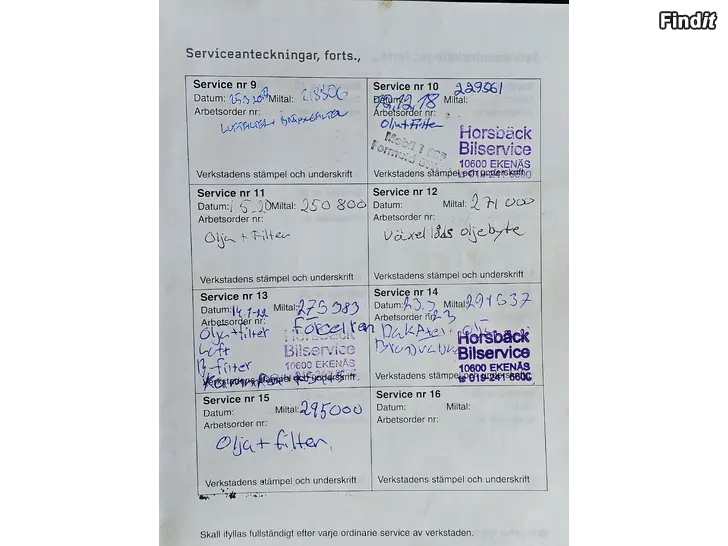 Findit
Serviceanteckningar, forts.,
Service nr 9
Datum: Miltal: 218306
Arbetsorder nr:
Verkstadens stämpel och underskrift
Service nr 10
229561
Datum: 19.12.18 Miltal:
Arbetsorder nr:
Olja+Filter
Mobil 1
Formula
Horsbäck
Bilservice
10600 EKENÄS
Verkstadens stämpel och underskrift
Service nr 11
Datum: 5-20 Miltal: 250 800
Arbetsorder nr:
Olja + Filter
Verkstadens stämpel och underskrift
Service nr 12
Datum: Miltal: 271 000
Arbetsorder nr:
Växellåds oljebyte
Verkstadens stämpel och underskrift
Service nr 13
Datum: 14.1-22 Miltal: 275983
Arbetsorder nr:
Olja+filter
Luft
B-filter
Horsbäck
Bilservice
10600 EKENÄS
Verkstadens stämpel och underskrift
Service nr 14
Datum: 23.3 Miltal: 291537
Arbetsorder nr: 23
Horsbäck
Bilservice
10600 EKENÄS
019-241 6600
Verkstadens stämpel och underskrift
Service nr 15
Datum: Miltal: 295000
Arbetsorder nr:
Olja + filter.
Verkstadens stämpel och underskrift
Service nr 16
Datum: Miltal:
Arbetsorder nr:
Verkstadens stämpel och underskrift
Skall ifyllas fullständigt efter varje ordinarie service av verkstaden.